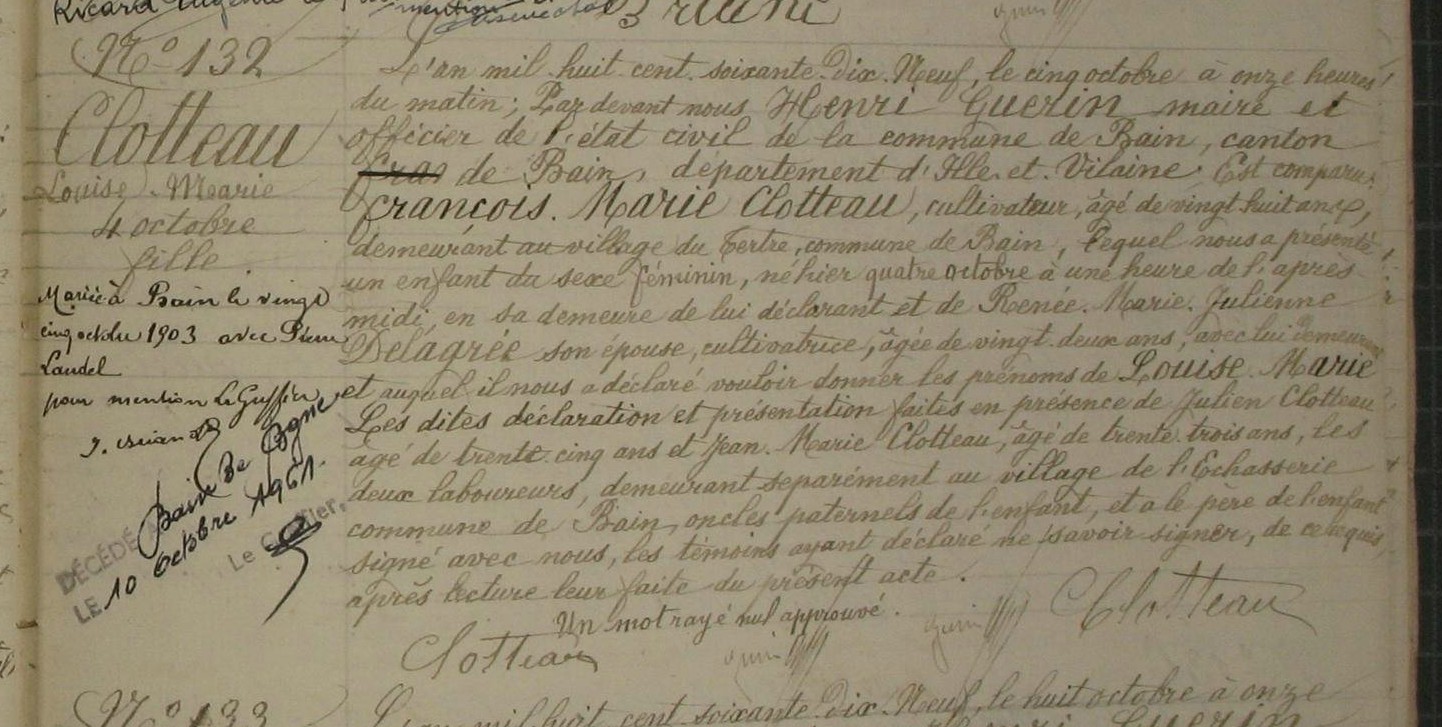 Ricard Eugénie
mention
N° 132
Clotteau
Louise Marie
4 octobre
fille
Mariée à Bain le vingt
cinq octobre 1903 avec Pierre
Laudel
pour mention Le Greffier
DÉCÉDÉ A Bain De Bgne
LE 10 octobre 1961.
Le Greffier,
L'an mil huit cent soixante Dix Neuf, le cinq octobre à onze heures
du matin; Par devant nous Henri Guerin maire et
officier de l'état civil de la commune de Bain, canton
de Bain, département d'Ille et Vilaine. Est comparu,
François Marie Clotteau, cultivateur, âgé de vingt huit ans,
demeurant au village du Tertre, commune de Bain, lequel nous a présenté
un enfant du sexe féminin, né hier quatre octobre à une heure de l'après
midi, en sa demeure de lui déclarant et de Renée Marie Julienne
Délagrée son épouse, cultivatrice, âgée de vingt deux ans, avec lui demeurant
et auquel il nous a déclaré vouloir donner les prénoms de Louise Marie
Les dites déclaration et présentation faites en présence de Julien Clotteau
âgé de trente cinq ans et Jean Marie Clotteau, âgé de trente trois ans, les
deux laboureurs, demeurant separément au village de l'Echasserie
commune de Bain, oncles paternels de l'enfant, et a le père de l'enfant
signé avec nous, les témoins ayant déclaré ne savoir signer, de ce requis,
après lecture leur faite du présent acte.
Un mot rayé nul approuvé.
Clotteau
Clotteau
N° 133
L'an mil huit cent soixante Dix Neuf, le huit octobre à onze
Henri Guerin